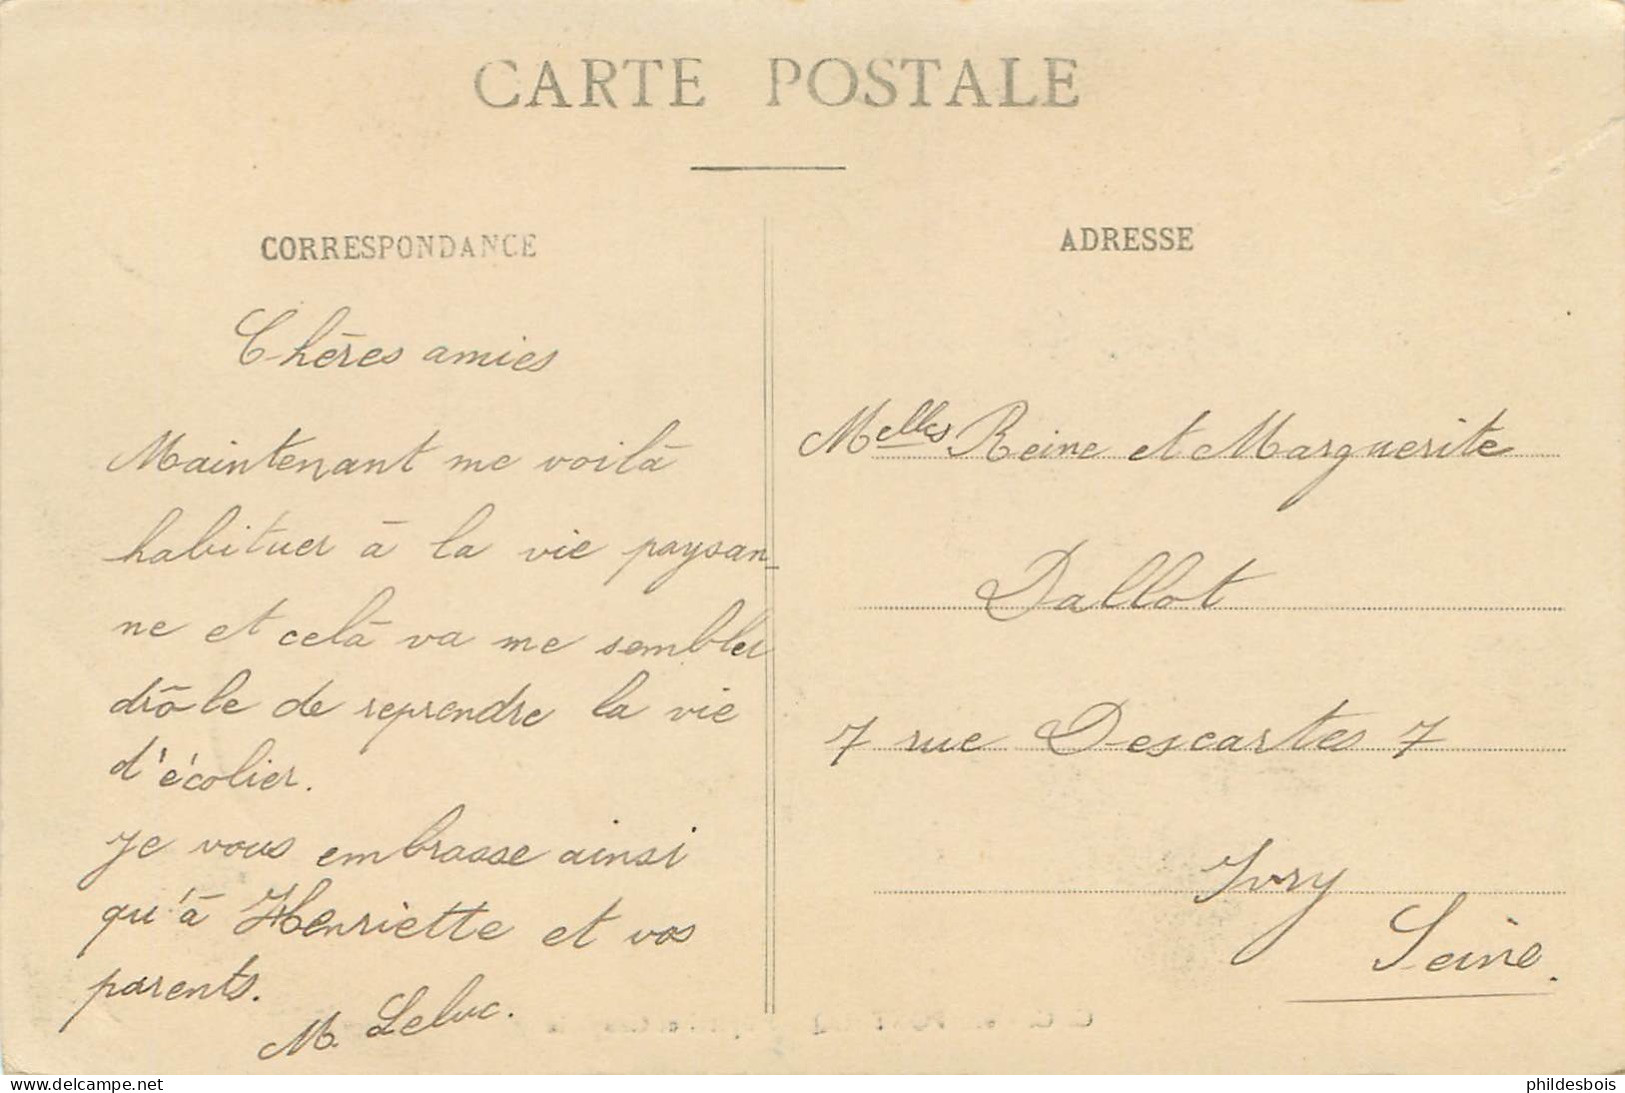 CARTE POSTALE
CORRESPONDANCE
Chères amies
Maintenant me voilà
habituer à la vie paysan-
ne et celà va me sembler
drôle de reprendre la vie
d'écolier.
Je vous embrasse ainsi
qu'à Henriette et vos
parents.
M. Leluc.
ADRESSE
Melles Reine et Marguerite
Dallot
7 rue Descartes 7
Ivry
Seine.
www.delcampe.net
phildesbois